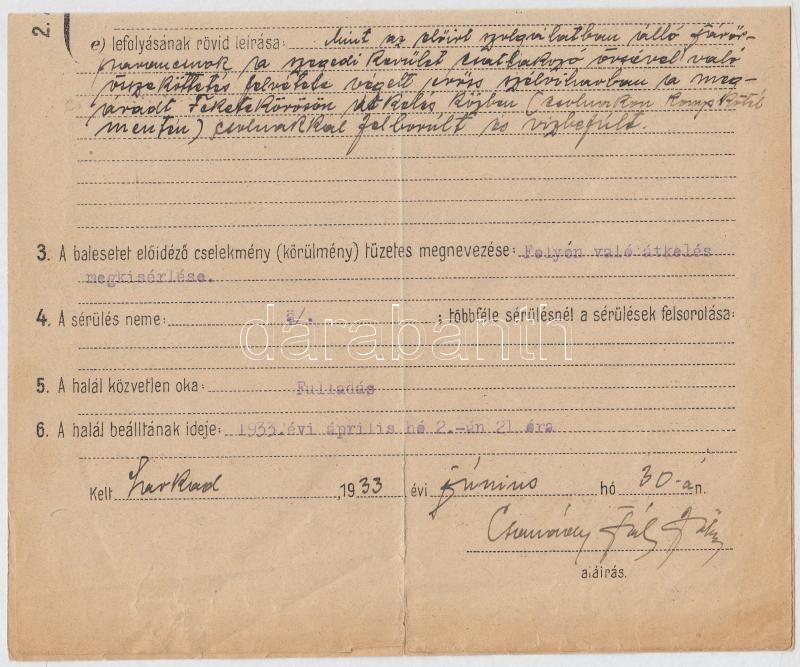 2.
e) lefolyásának rövid leírása: Mint az előírt szolgálatban álló járőr-
parancsnok a szegedi kerület csatlakozó őrsével való
összeköttetés felvétele végett erős szélviharban a meg-
áradt Feketekörösön átkelés közben (csolnakon kompkötél
mentén) csolnakkal felborult és vízbefúlt.
3. A balesetet előidéző cselekmény (körülmény) tüzetes megnevezése: Folyón való átkelés
megkisérlése.
4. A sérülés neme: ; többféle sérülésnél a sérülések felsorolása:
5. A halál közvetlen oka: Fulladás
6. A halál beálltának ideje: 1933.évi április hó 2.-án 21 óra
Kelt Sarkad, 1933 évi június hó 30-án.
aláírás.
darabanth